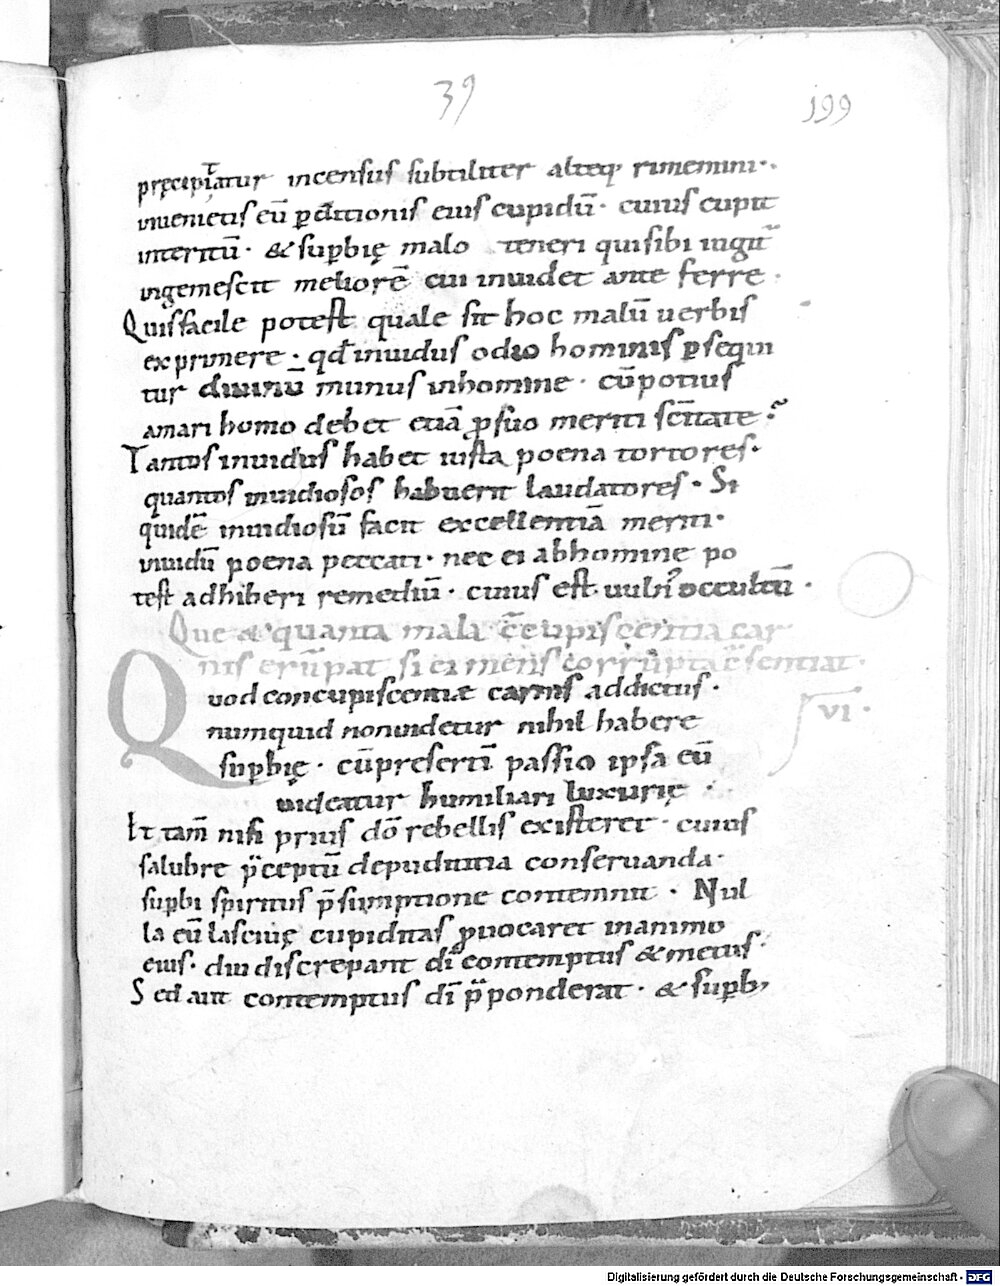 39
199
pręcipitatur incensus subtiliter alteq; rimemini·
inuenietis eū ꝑditionis eius cupidū· cuius cupit
interitū· & suꝑbię malo teneri qui sibi iugit̄
ingemescit meliorē cui inuidet ante ferre·
Quis facile potest quale sit hoc malū uerbis
exprimere· qđ inuidus odio hominis ꝑsequi
tur diuinū munus in homine· cū potius
amari homo debet etiā ꝓ suo meriti sc̄itate?
Tantos inuidus habet iusta poena tortores·
quantos inuidiosos habuerit laudatores· Si
quidē inuidiosū facit excellentiā meriti·
inuidū poena peccati· nec ei ab homine po
test adhiberi remediū· cuius est uuln' occultū·
Que & quanta mala c̄cupiscentia car
nis erūpat si ei mens corrūpta c̄sentiat·
VI·
Quod concupiscentiæ carnis addictus·
numquid non uidetur nihil habere
suꝑbię· cū presertī passio ipsa eū
uideatur humiliari luxurię·
Et tam̄ nisi prius dō rebellis existeret· cuius
salubre p̄ceptū de pudicitia conseruanda·
suꝑbi spiritus p̄sumptione contemnit· Nul
la eū lasciuię cupiditas ꝓuocaret in animo
eius· diu discrepant dī contemptus & metus·
Sed aūt contemptus dī p̄ponderat· & suꝑb;
Digitalisierung gefördert durch die Deutsche Forschungsgemeinschaft - DFG